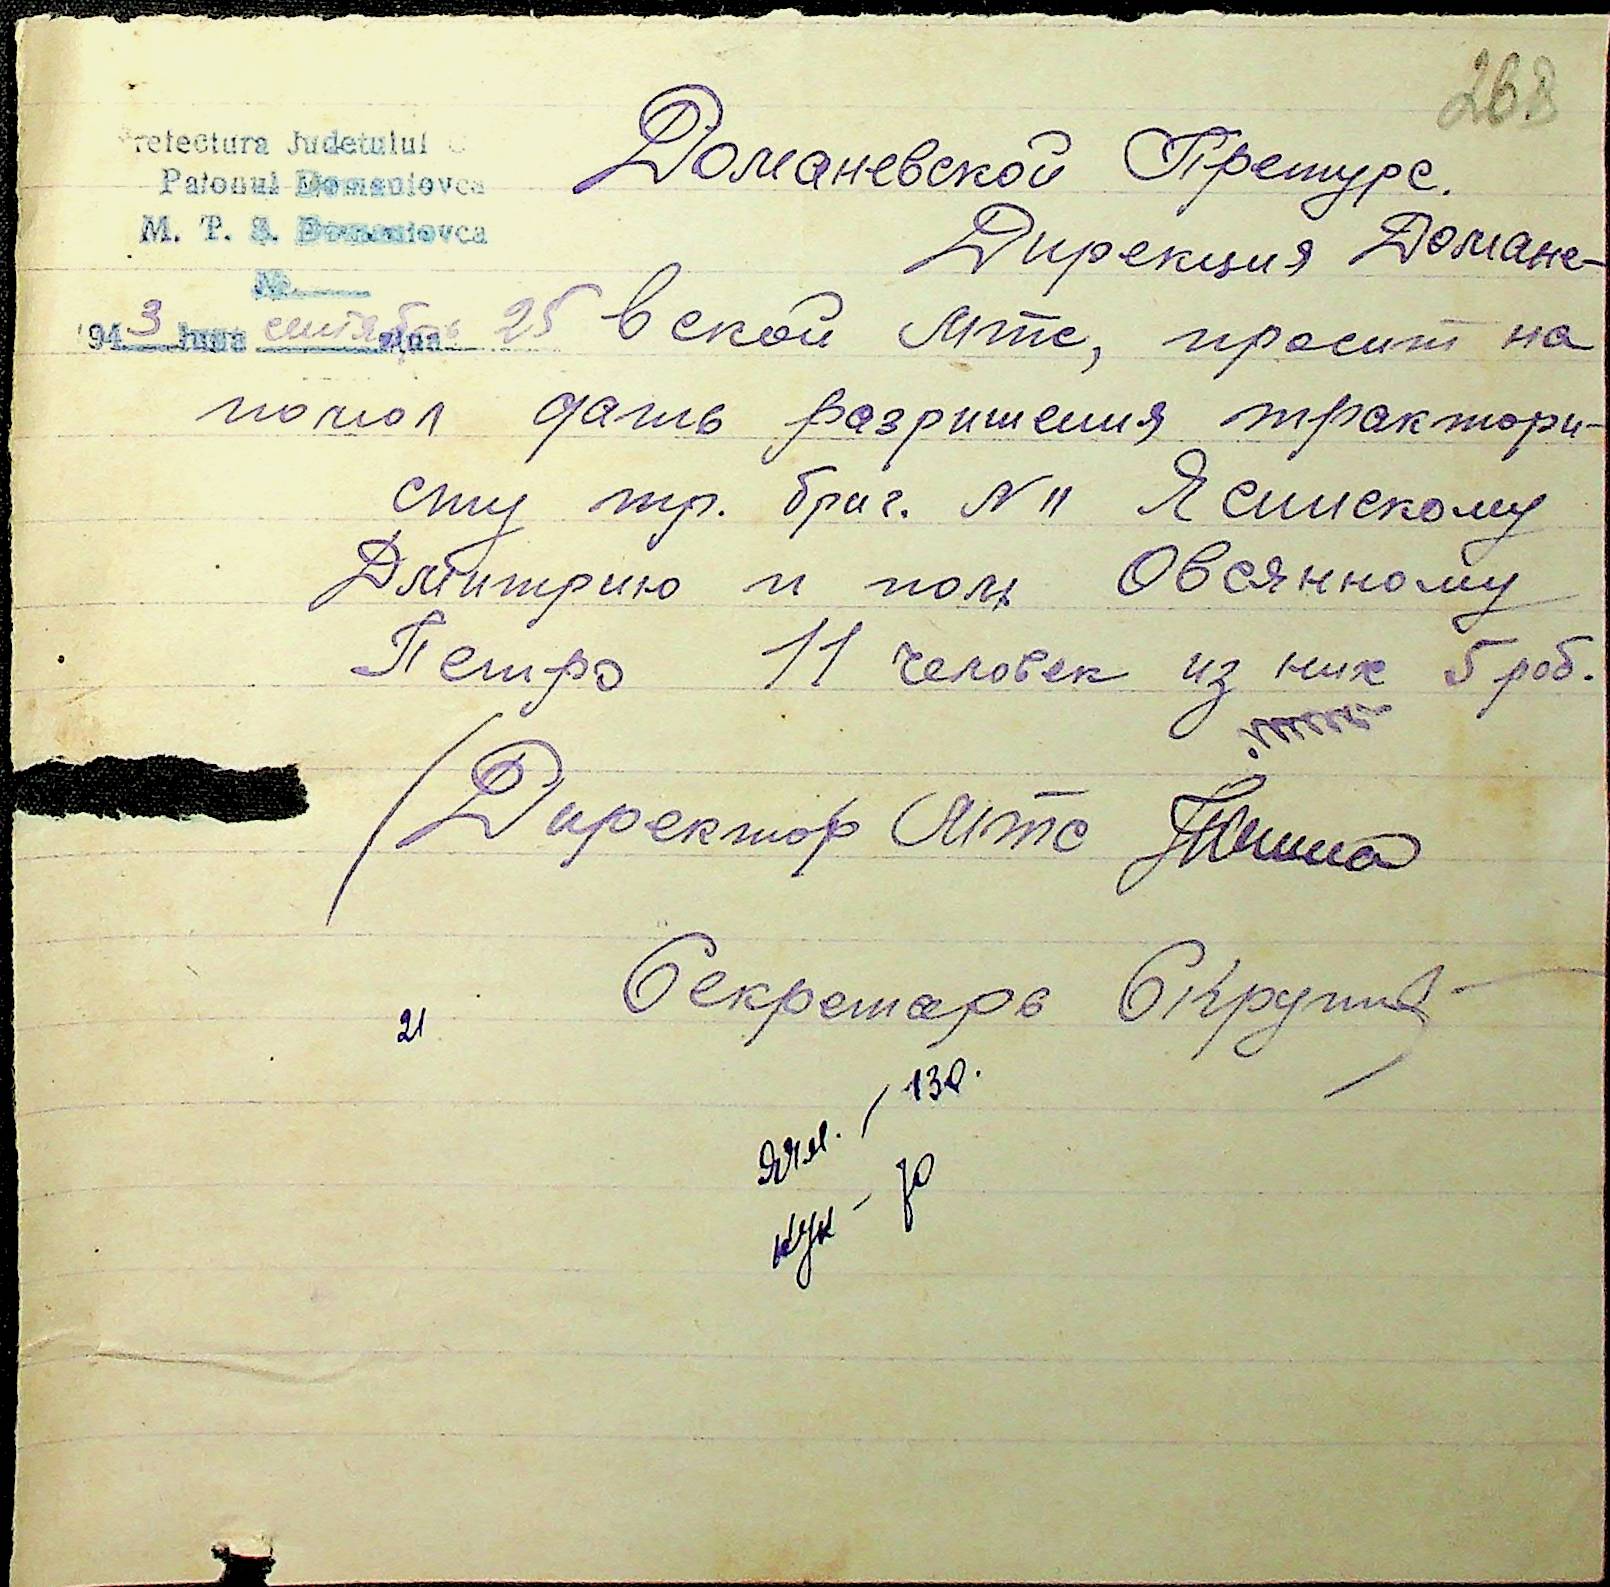 268
Prefectura Judetului
Raionul Domaniovca
M. T. S. Domaniovca
No.
1943 luna сентябрь ziua 25
Доманевской Претуре.
Дирекция Домане-
вской Мтс, просит на
помол дать разришения трактори-
сту тр. бриг. N 11 Ясинскому
Дмитрию и пом Овсянному
Петро 11 человек из них 5 роб.
Директор Мтс
Секретарь
21
Ячм. - 130.
кук - 70